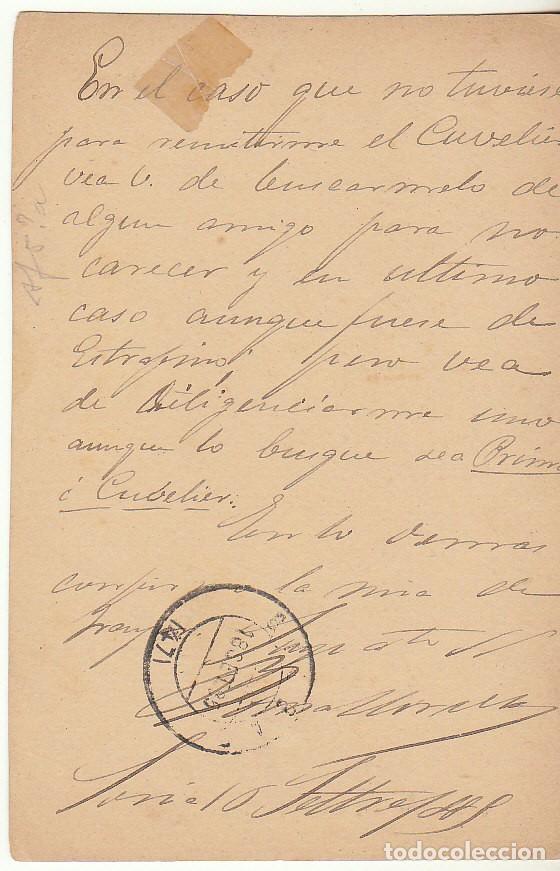 En el caso que no tuviese
para remitirme el Cuvelier
vea V. de buscarmelo de
algun amigo para no
carecer y en ultimo
caso aunque fuese de
Estrafino; pero vea
de diligenciarme uno
aunque lo busque sea Prima
ó Cubelier.
En lo demas
la mia de
Soria 16
todocoleccion